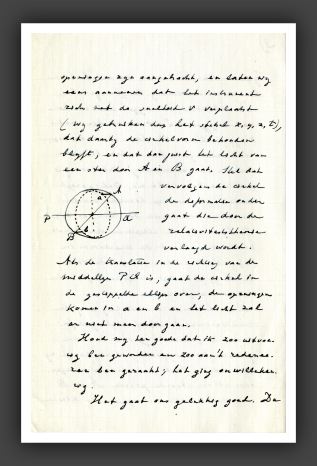 openingen zijn aangebracht, en laten wij
eens aannemen dat het instrument
zich met de snelheid v verplaatst
(wij gebruiken dus het stelsel x, y, z, t),
dat daarbij de cirkelvorm behouden
blijft, en dat dan juist het licht van
een ster door A en B gaat. Stel dat
vervolgens de cirkel
de deformatie onder
gaat die door de
relativiteitstheorie
verlangd wordt.
A
a
P
Q
B
b
Als de translatie in de richting van de
middellijn PQ is, gaat de cirkel in
de gestippelde ellips over, de openingen
komen in a en b en het licht zal
er niet meer door gaan.
Houd mij ten goede dat ik zoo uitvoe-
rig ben geworden en zoo aan't redenee-
ren ben geraakt; het ging onwillekeu-
rig.
Het gaat ons gelukkig goed. De